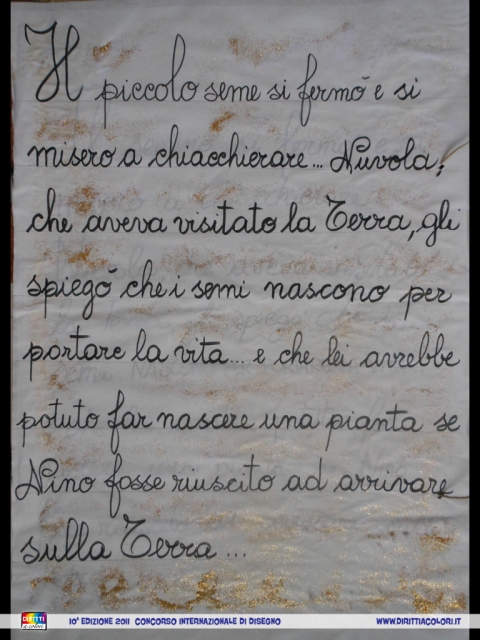 Il piccolo seme si fermó e si
misero a chiacchierare... Nuvola,
che aveva visitato la Terra, gli
spiegó che i semi nascono per
portare la vita... e che lei avrebbe
potuto far nascere una pianta se
Nino fosse riuscito ad arrivare
sulla Terra ...
DIRITTI a colori 10ª EDIZIONE 2011 CONCORSO INTERNAZIONALE DI DISEGNO WWW.DIRITTIACOLORI.IT